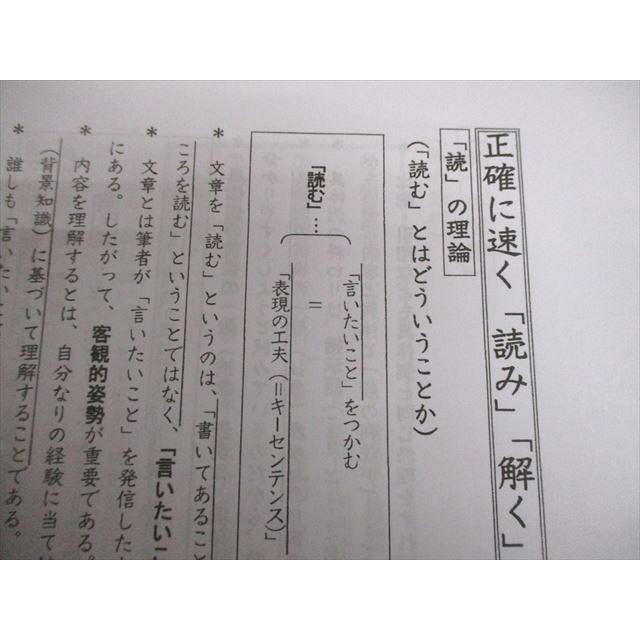 正確に速く「読み」「解く」
「読」の理論
（「読む」とはどういうことか）
「読む」…
「言いたいこと」をつかむ
＝
「表現の工夫（＝キーセンテンス）」
＊ 文章を「読む」というのは、「書いてあること
ころを読む」ということではなく、「言いたい
＊ 文章とは筆者が「言いたいこと」を発信した
にある。したがって、客観的姿勢が重要である。
＊ 内容を理解するとは、自分なりの経験に当ては
（背景知識）に基づいて理解することである。
＊ 誰しも「言いたいこと